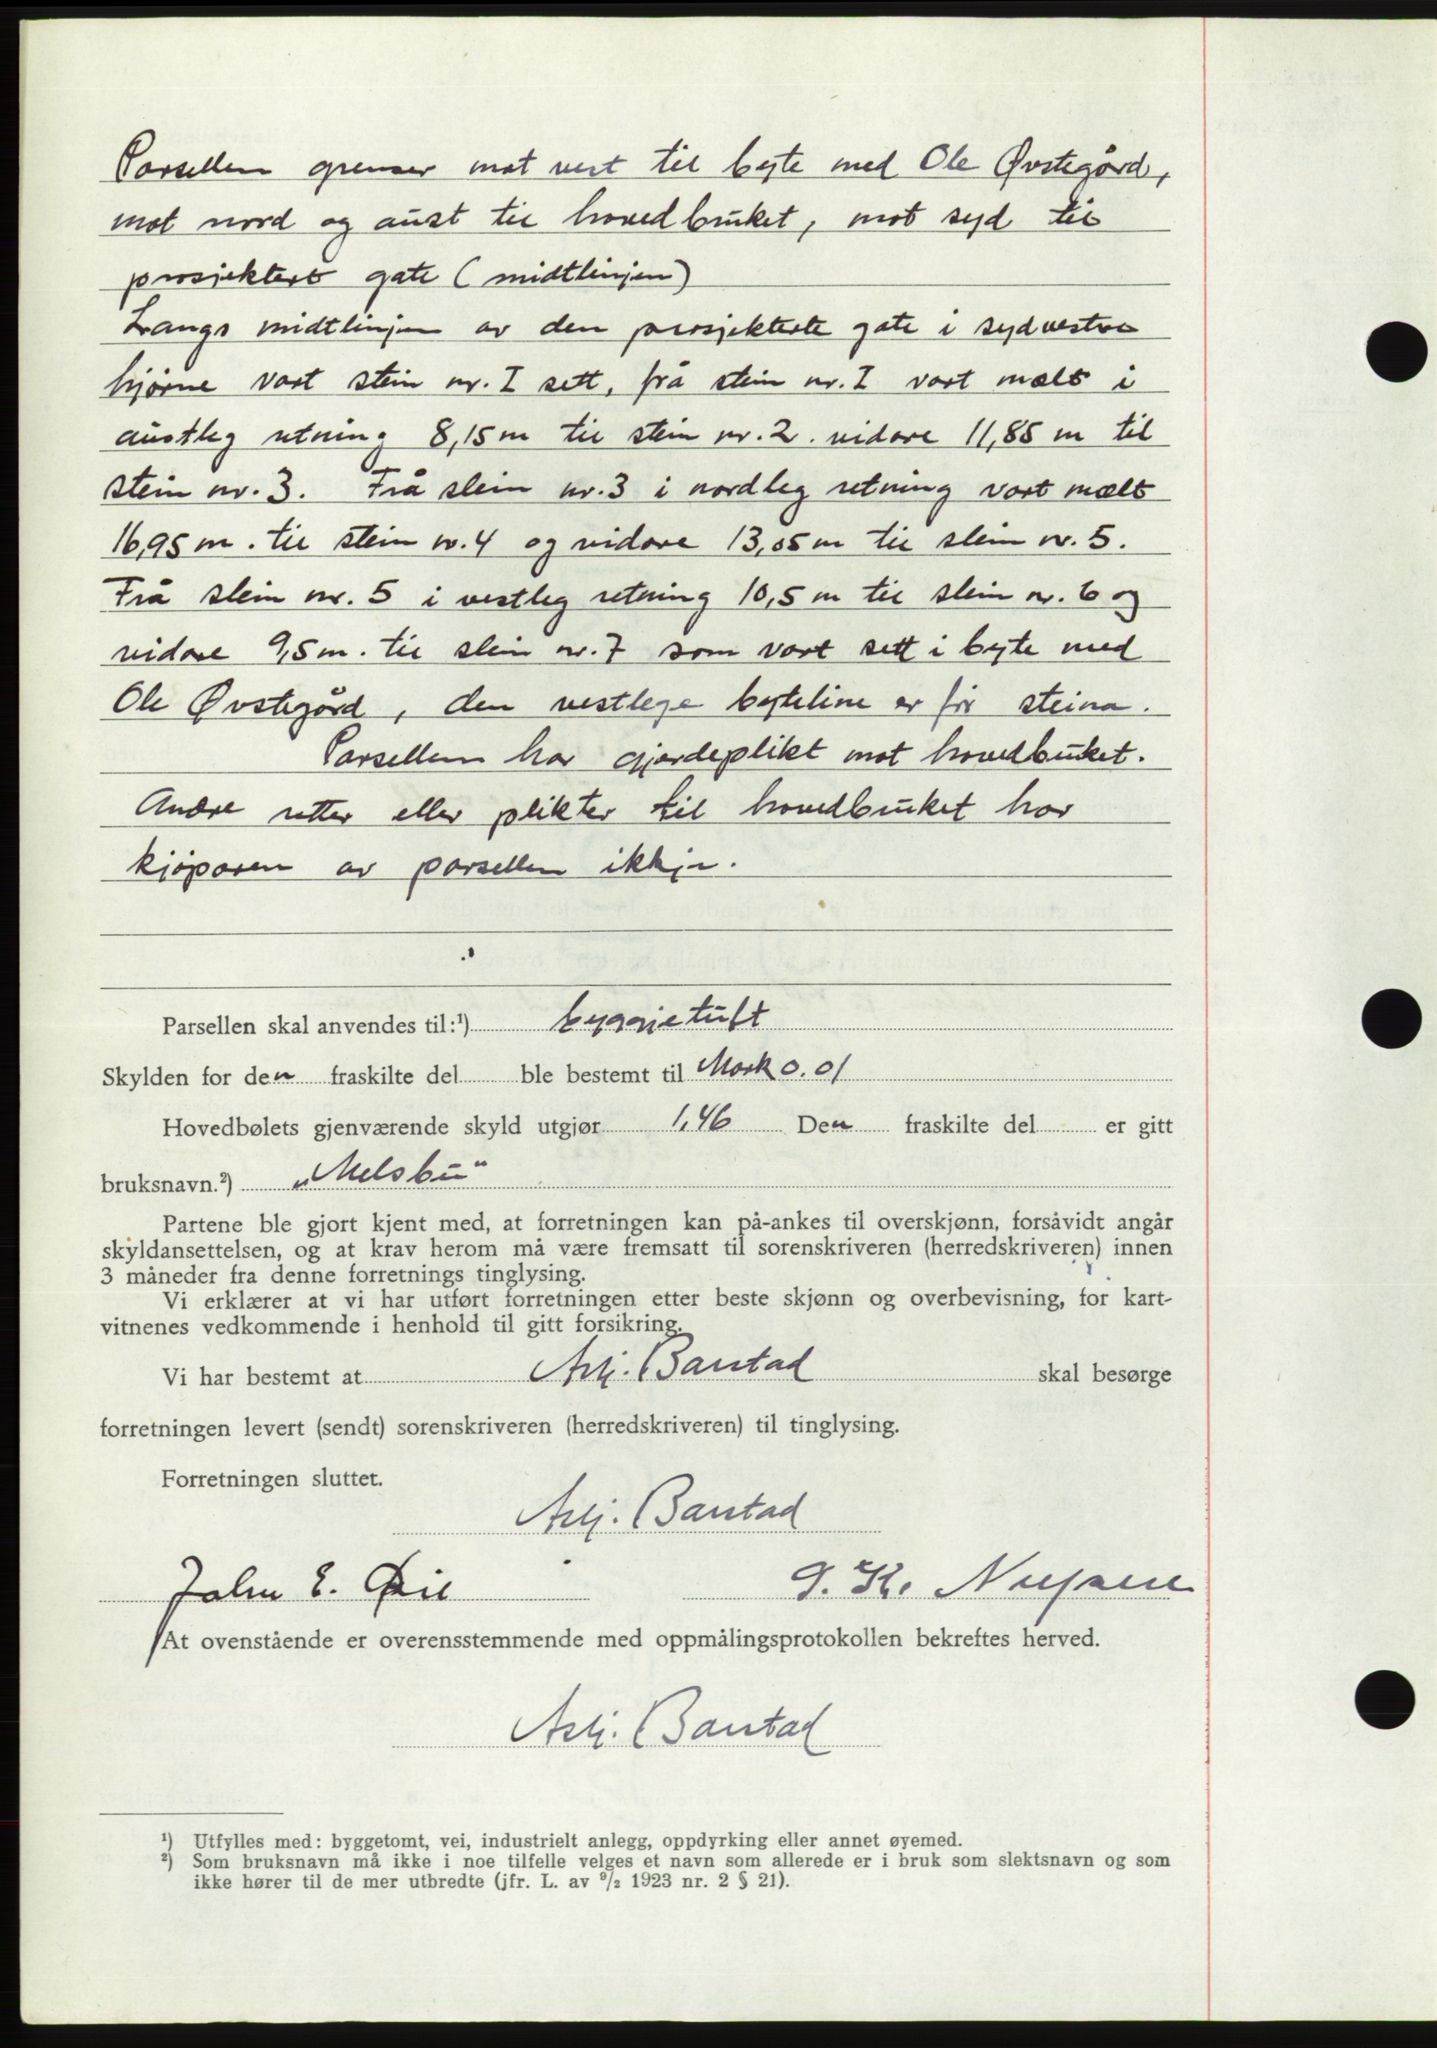 Parsellen grenser mot vest til byte med Ole Øvstegård,
mot nord og aust til hovedbruket, mot syd til
prosjektert gate (midtlinjen)
Langs midtlinjen av den prosjekterte gate i sydvestre
hjørne vart stein nr. I sett, frå stein nr. I vart mælt i
austleg retning 8,15 m til stein nr. 2. vidare 11,85 m til
stein nr. 3. Frå stein nr. 3 i nordleg retning vart mælt
16,95 m. til stein nr. 4 og vidare 13,05 m til stein nr. 5.
Frå stein nr. 5 i vestleg retning 10,5 m til stein nr. 6 og
vidare 9,5 m. til stein nr. 7 som vart sett i byte med
Ole Øvstegård, den vestlege byteline er frir steina.
Parsellen har gjerdeplikt mot hovedbruket.
Andre retter eller plikter til hovedbruket har
kjøparen av parsellen ikkje.
Parsellen skal anvendes til:¹) byggjetuft
Skylden for den fraskilte del ble bestemt til Mark 0.01
Hovedbølets gjenværende skyld utgjør 1,46 Den fraskilte del er gitt
bruksnavn.²) „Melsbu“
Partene ble gjort kjent med, at forretningen kan på-ankes til overskjønn, forsåvidt angår
skyldansettelsen, og at krav herom må være fremsatt til sorenskriveren (herredskriveren) innen
3 måneder fra denne forretnings tinglysing.
Vi erklærer at vi har utført forretningen etter beste skjønn og overbevisning, for kart-
vitnenes vedkommende i henhold til gitt forsikring.
Vi har bestemt at Asbj. Barstad skal besørge
forretningen levert (sendt) sorenskriveren (herredskriveren) til tinglysing.
Forretningen sluttet.
Barstad
John E.
At ovenstående er overensstemmende med oppmålingsprotokollen bekreftes herved.
Barstad
¹) Utfylles med: byggetomt, vei, industrielt anlegg, oppdyrking eller annet øyemed.
²) Som bruksnavn må ikke i noe tilfelle velges et navn som allerede er i bruk som slektsnavn og som
ikke hører til de mer utbredte (jfr. L. av ⁹/₂ 1923 nr. 2 § 21).